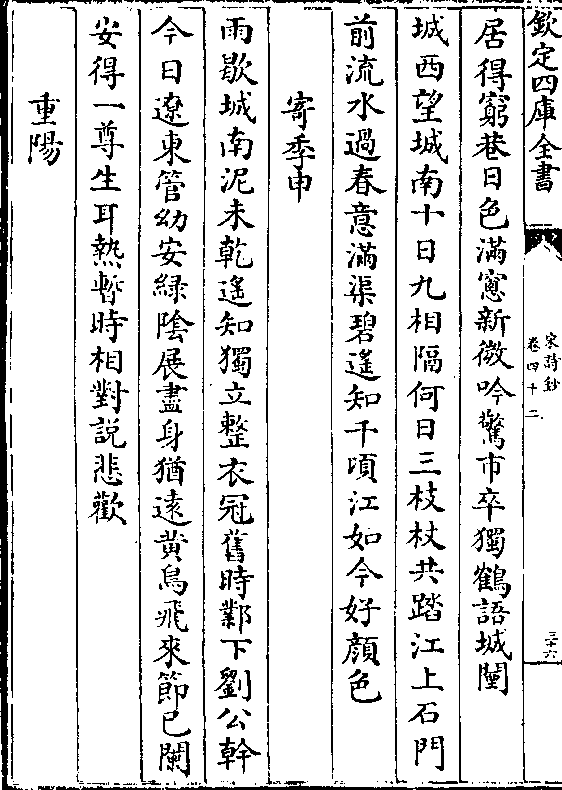 欽定四庫全書
宋詩鈔
卷四十二
三十六
居得窮巷日色滿窻新微吟驚市卒獨鶴語城闉
城西望城南十日九相隔何日三枝杖共踏江上石門
前流水過春意滿渠碧遙知千頃江如今好顔色
寄季申
雨歇城南泥未乾遙知獨立整衣冠舊時鄴下劉公幹
今日遼東管幼安綠陰展盡身猶遠黄鳥飛來節已闌
安得一尊生耳熱暫時相對説悲歡
重陽